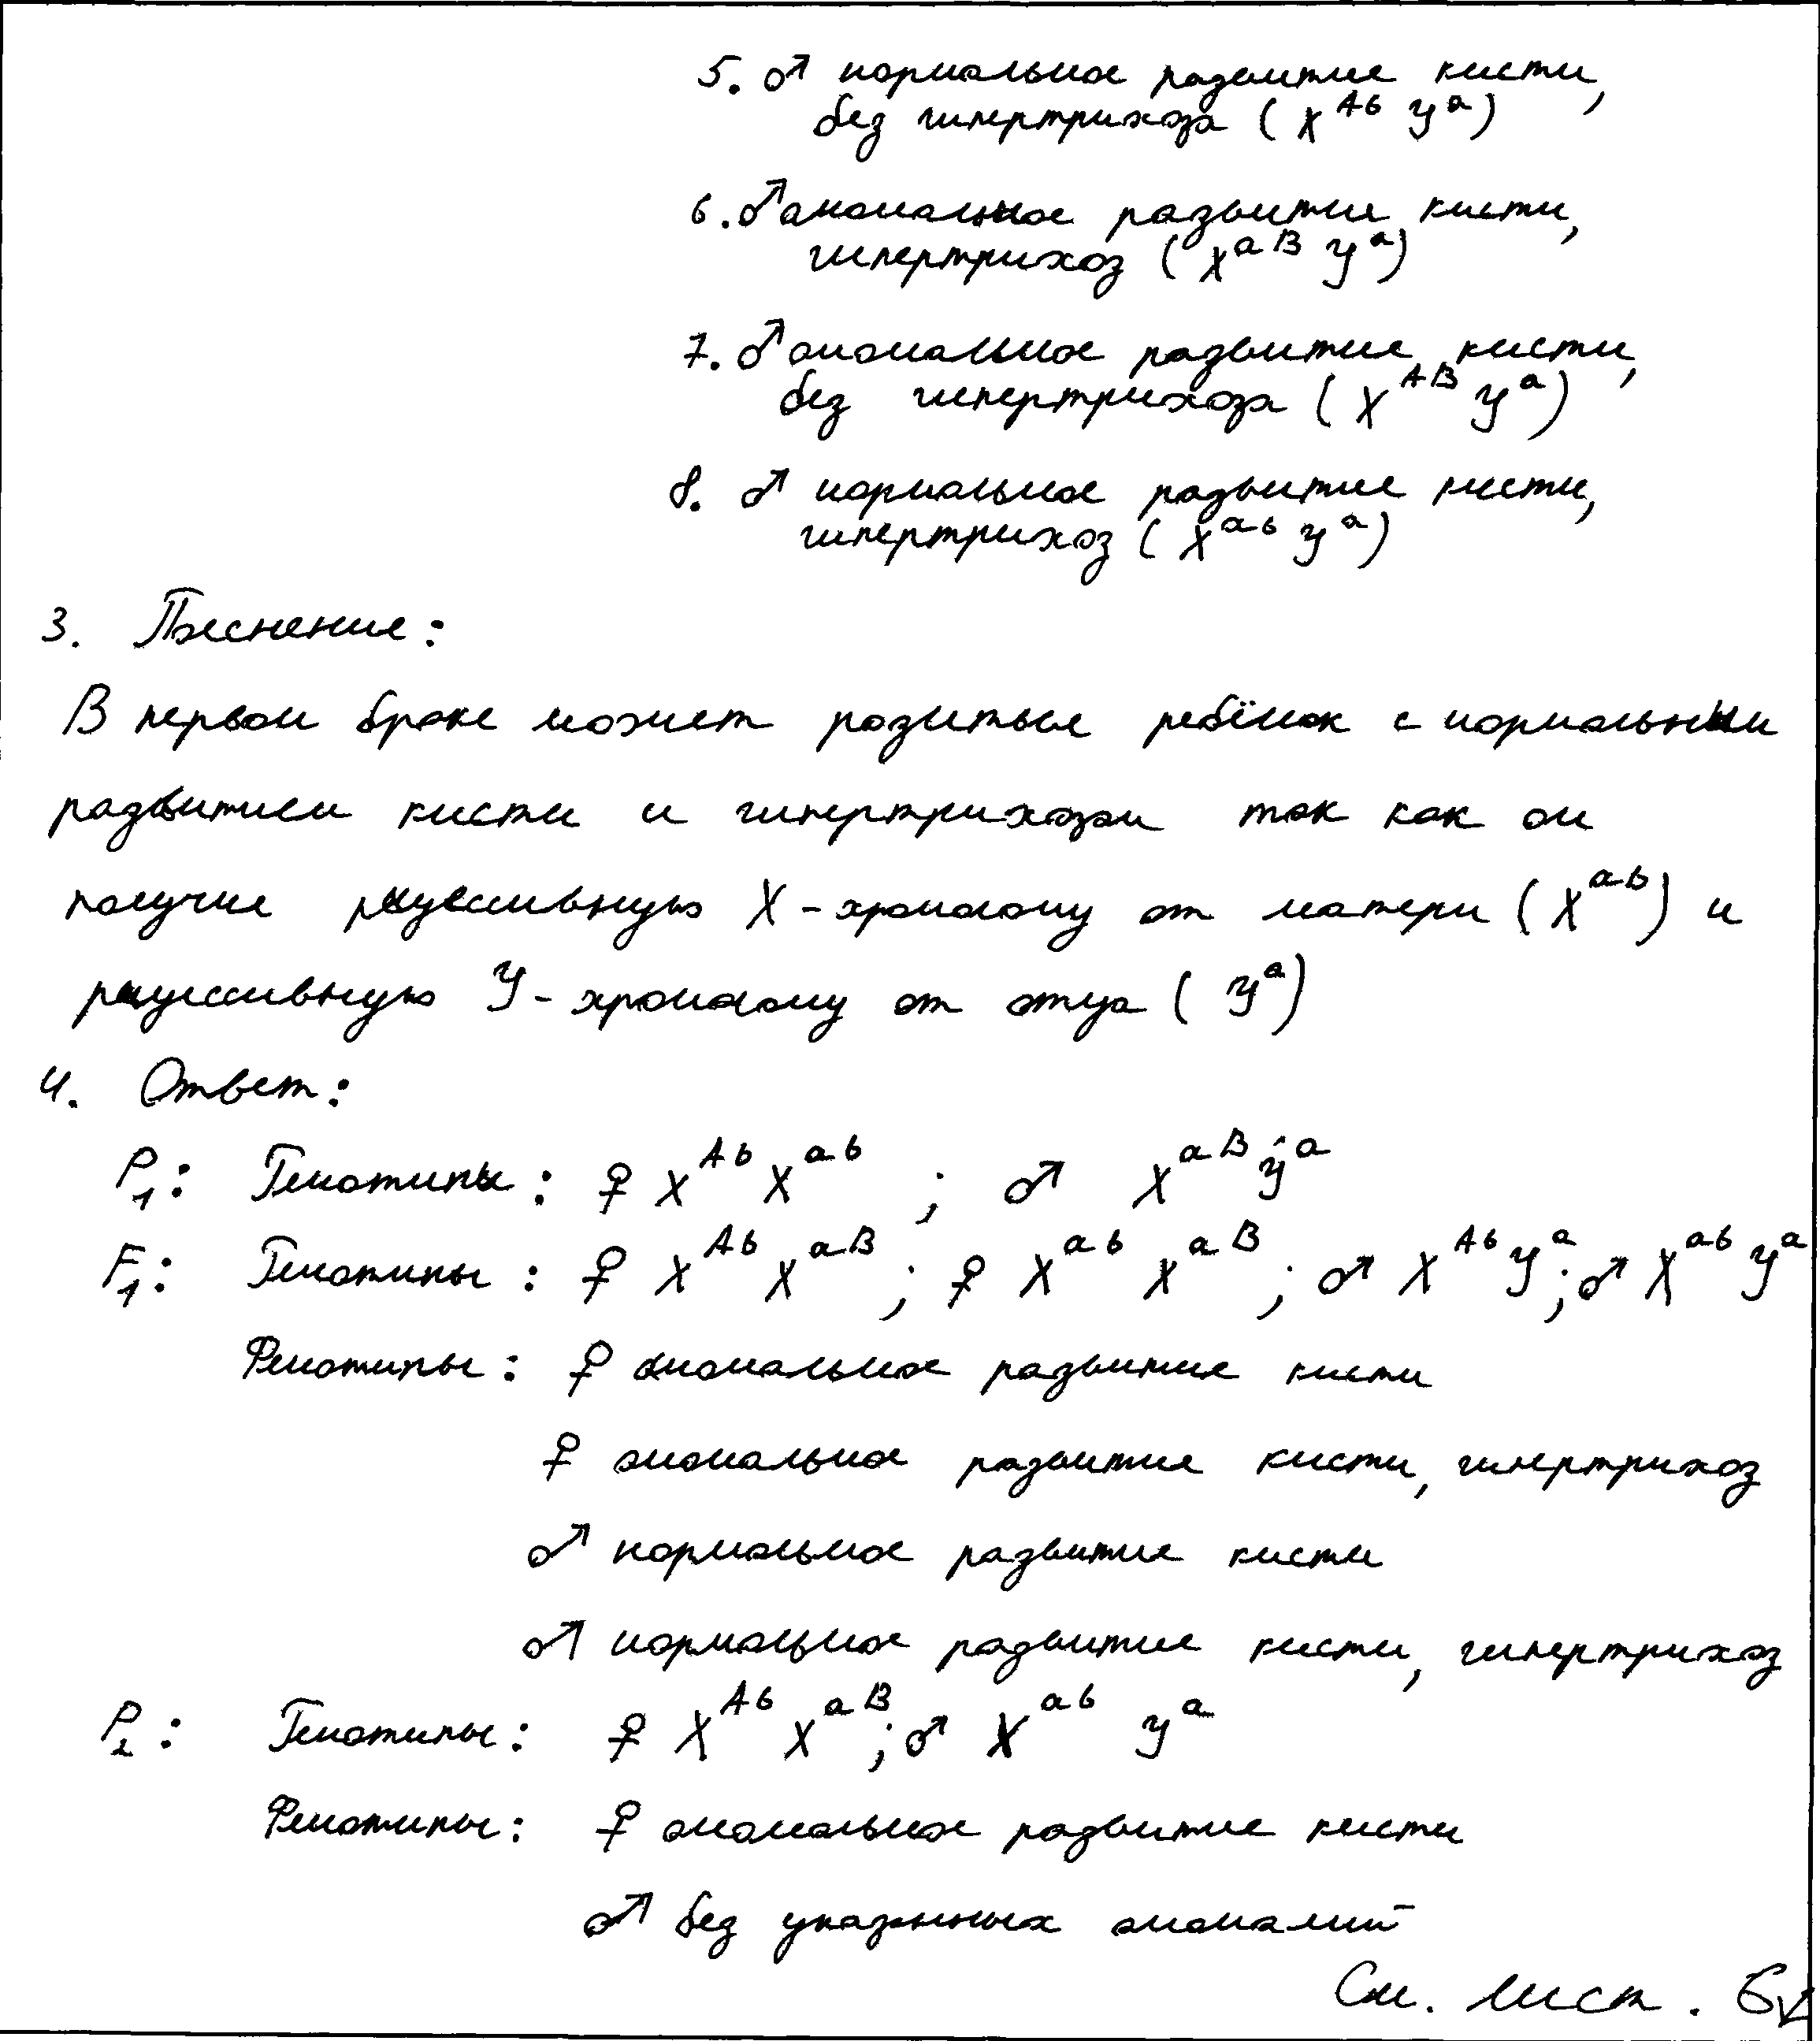 5. ♂ нормальное развитие кисти,
без гипертрихоза ( X^Ab У^a )
6. ♂ аномальное развитие кисти,
гипертрихоз ( X^aB У^a )
7. ♂ аномальное развитие кисти,
без гипертрихоза ( X^AB У^a )
8. ♂ нормальное развитие кисти,
гипертрихоз ( X^ab У^a )
3. Пояснение:
В первом браке может родиться ребёнок с нормальным
развитием кисти и гипертрихозом так как он
получил рецессивную X - хромосому от матери ( X^ab ) и
рецессивную У - хромосому от отца ( У^a )
4. Ответ:
P₁: Генотипы: ♀ X^Ab X^ab ; ♂ X^aB У^a
F₁: Генотипы: ♀ X^Ab X^aB ; ♀ X^ab X^aB ; ♂ X^Ab У^a ; ♂ X^ab У^a
Фенотипы: ♀ аномальное развитие кисти
♀ аномальное развитие кисти, гипертрихоз
♂ нормальное развитие кисти
♂ нормальное развитие кисти, гипертрихоз
P₂: Генотипы: ♀ X^Ab X^aB ; ♂ X^ab У^a
Фенотипы: ♀ аномальное развитие кисти
♂ без указанных аномалий
См. лист. 6